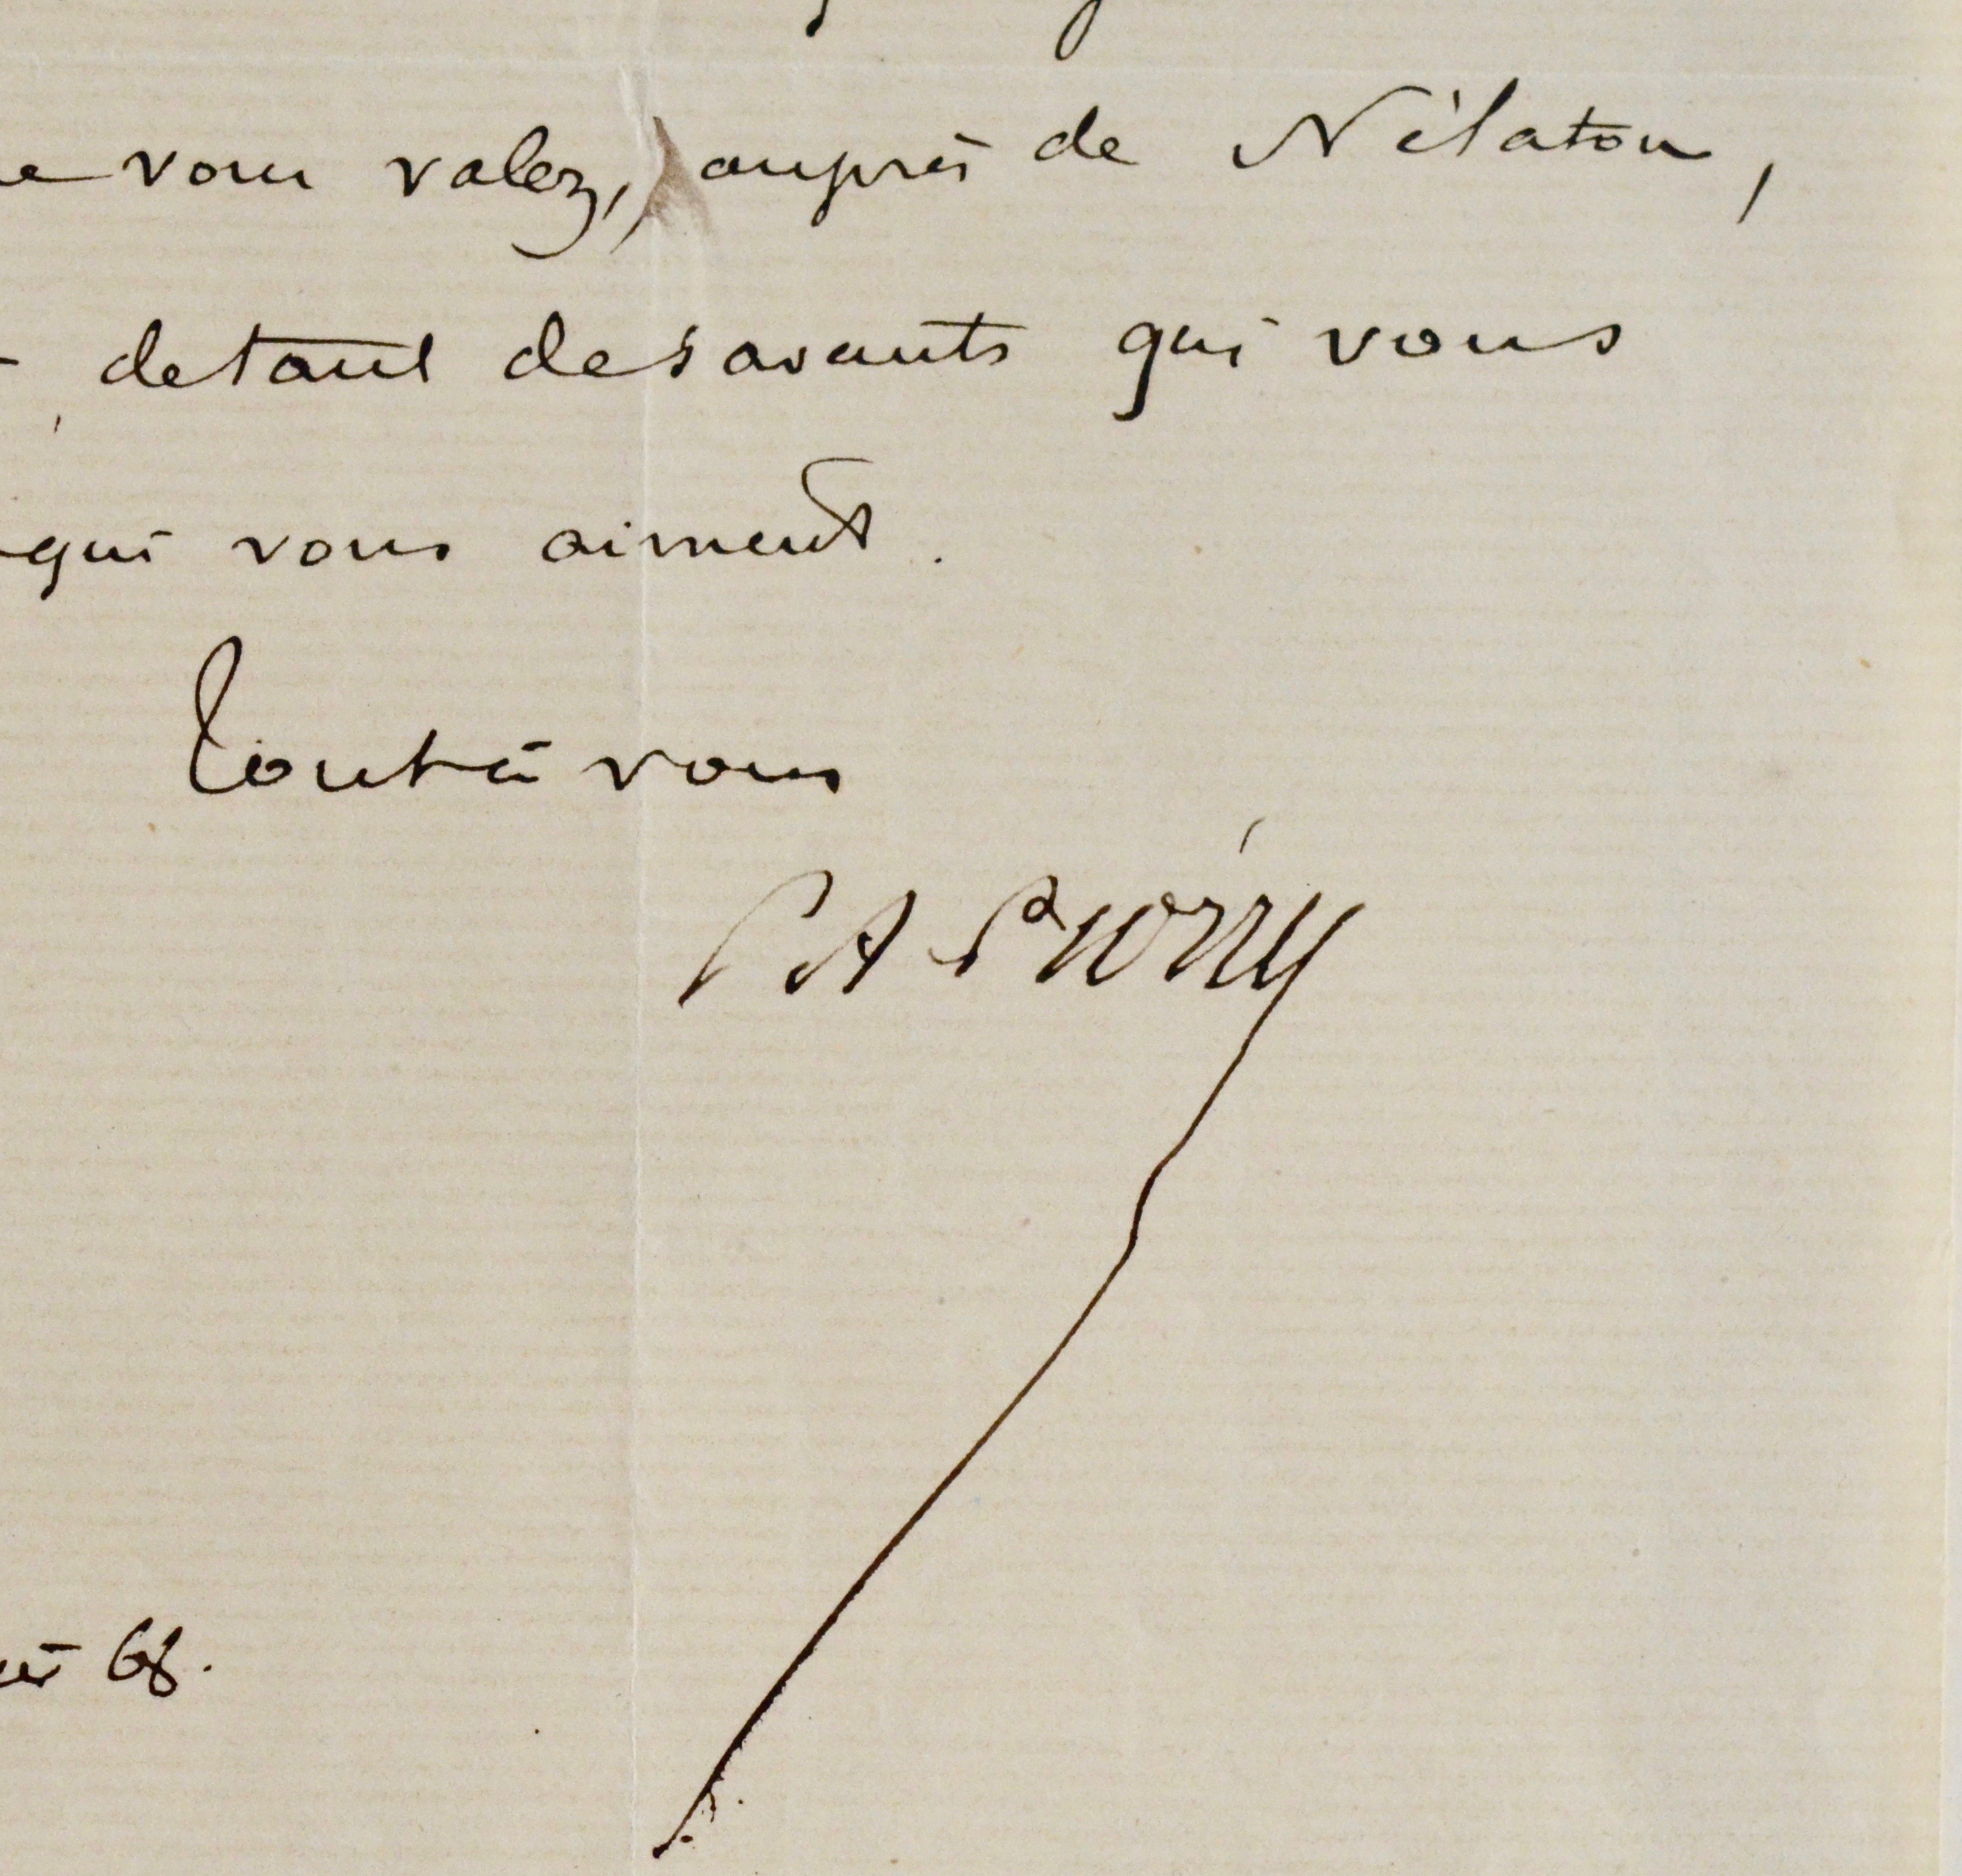 vous valez,) auprès de Nélaton,
de tant de savants qui vous
qui vous aiment.
Tout à vous
P A Piorry
68.